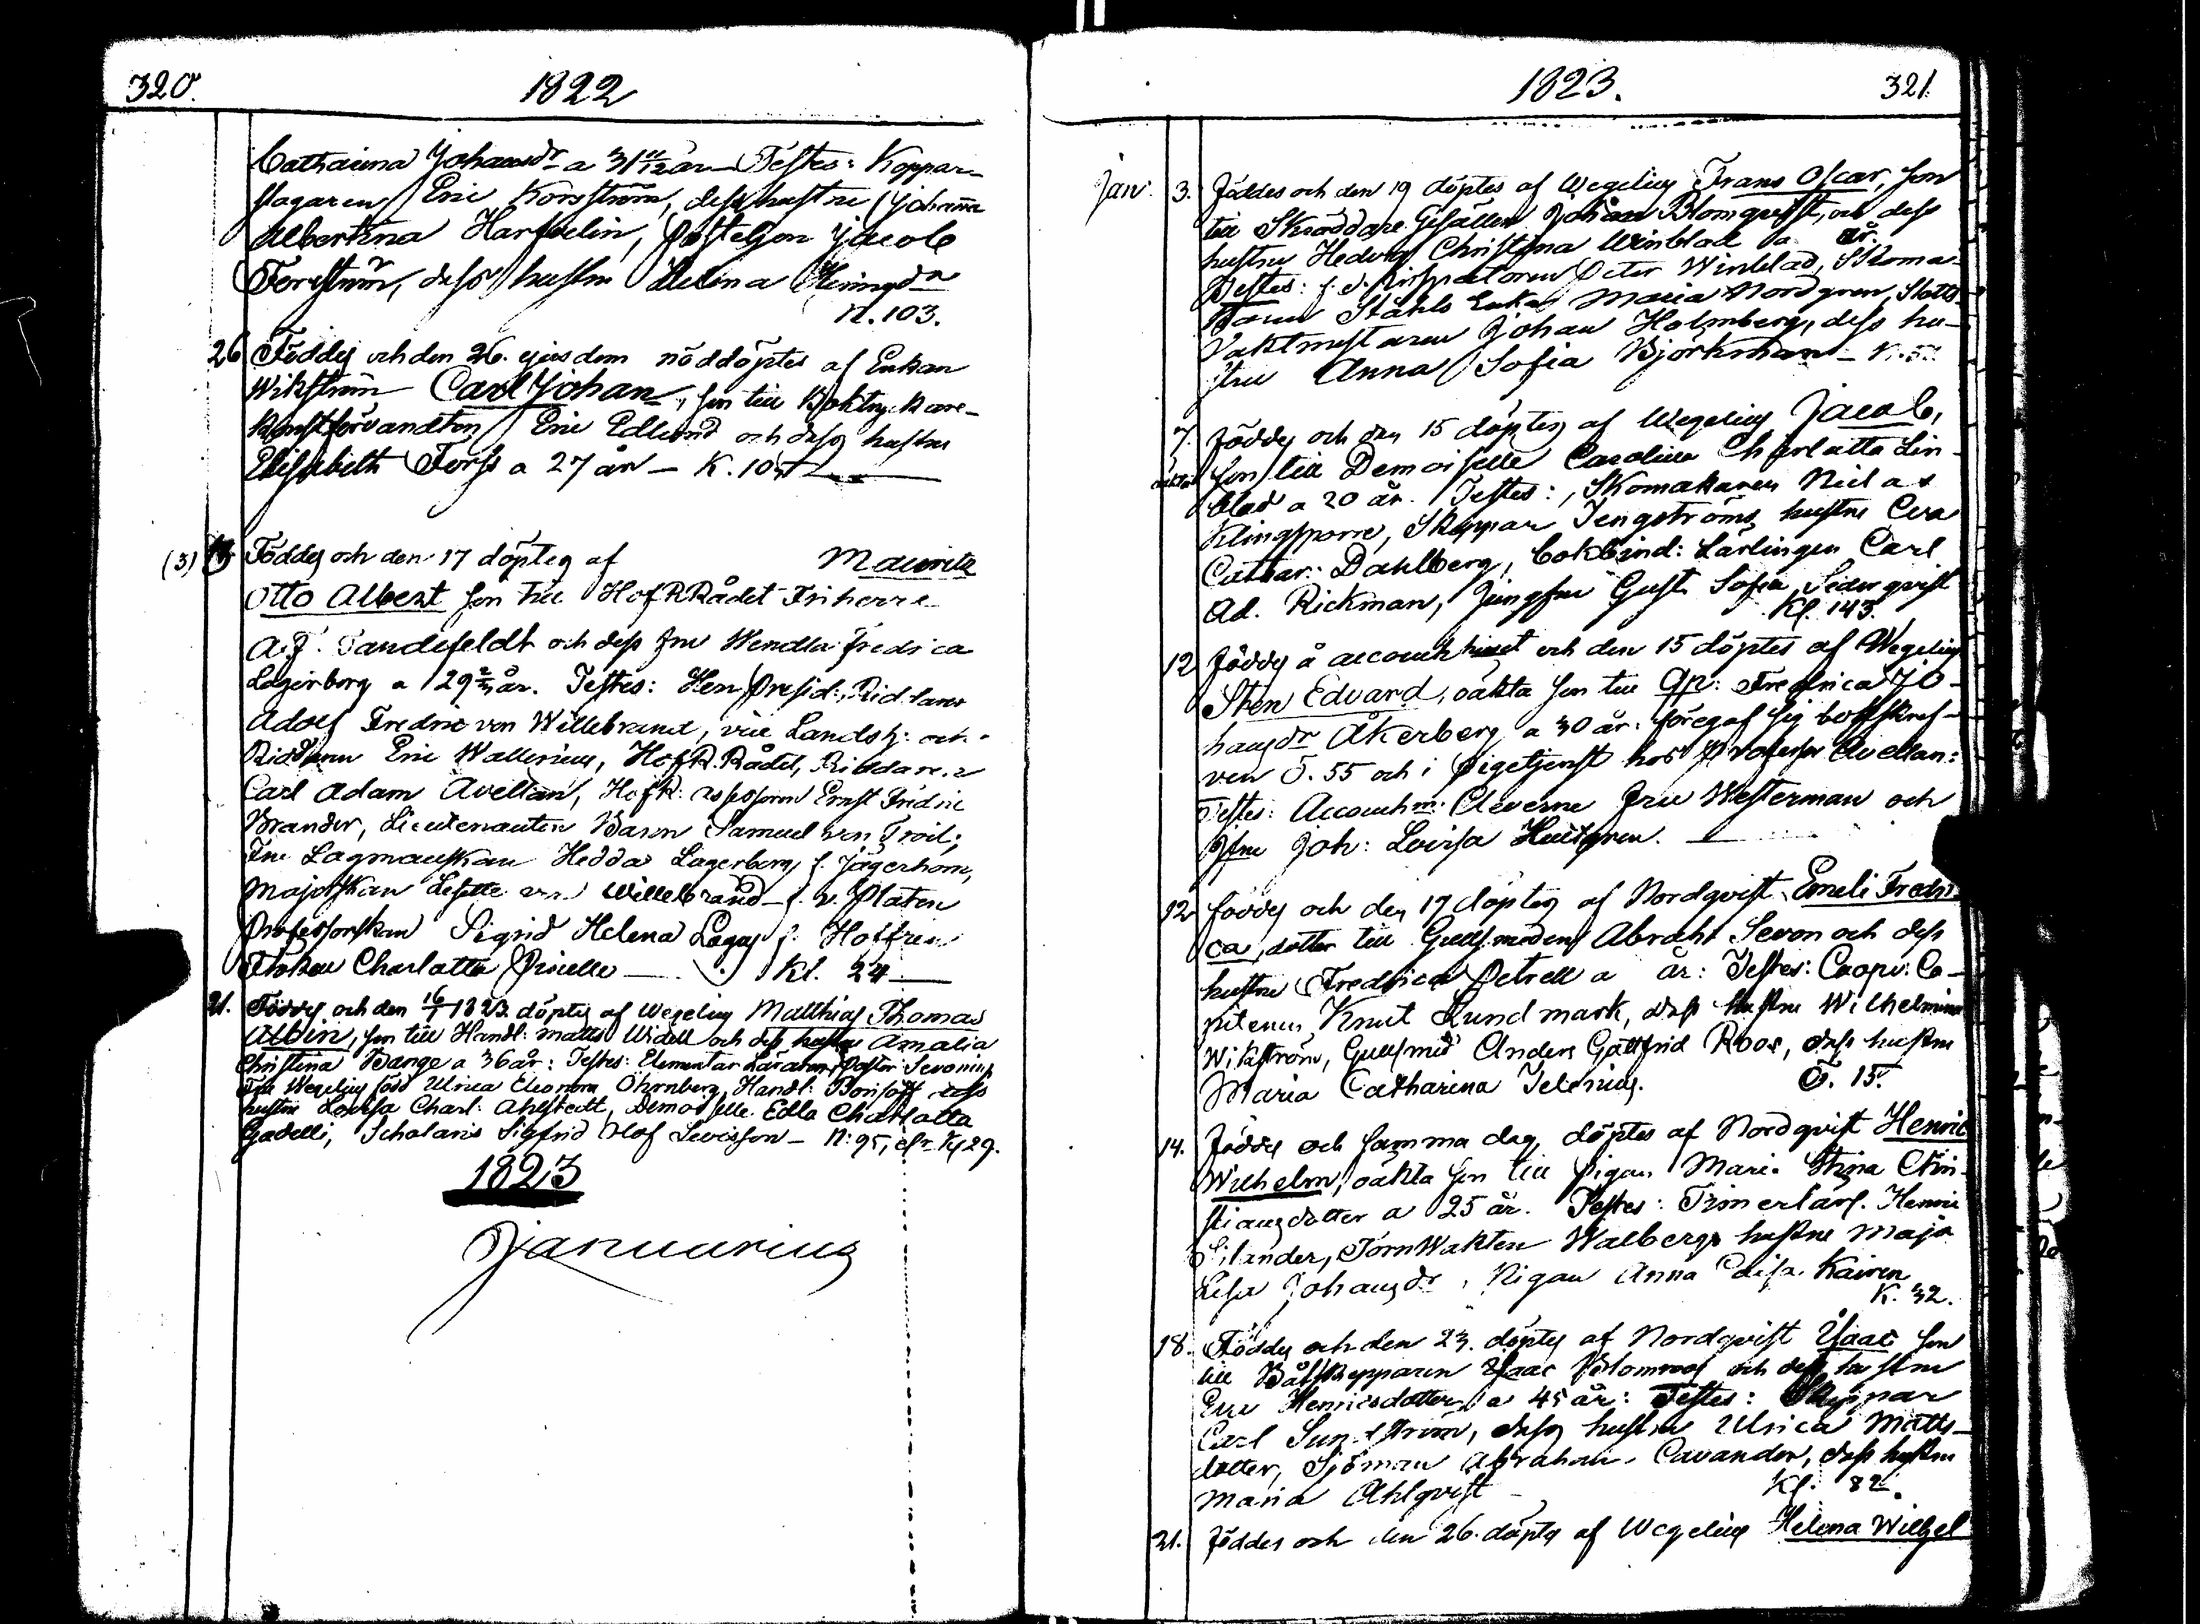 320.
1822
Catharina Johansdr a 31 11/12 år — Testes: Koppar-
slagaren Eric Korsström, dess hustru Johanna
Albertina Harfvelin, Postiljon Jacob
Forsström, dess hustru Helena Heningsdr
N. 103.
26 Föddes och den 26. ejusdem nöddöptes af Enkan
Wikström Carl Johan, son till Boktryckare-
konstförvandten Eric Edlund och dess hustru
Elisabeth Forss a 27 år — K. 105
(3) Föddes och den 17 döptes af Mauritz
Otto Albert son till HofR Rådet Friherre
A.F. Tandefeldt och dess Fru Wendla Fredrica
Lagerborg a 29 år. Testes: Herr Presid: Riddaren
Adolf Fredric von Willebrand, vice Landsh: och
Riddaren Eric Wallenius, HofR. Rådet, Riddaren
Carl Adam Avellan, HofR: assessoren Ernst Fredric
Brander, Lieutenanten Baron Samuel von Troil;
Fru Lagmanskan Hedda Lagerborg f. Jägerhorn,
Majorskan Lisette von Willebrand — f. v. Platen
Professorskan Sigrid Helena Lagus f. Hoffren
Fröken Charlotta — Kl. 24 —
21. Föddes och den 16/1 1823 döptes af Wegelius Matthias Thomas
Albin, son till Handl: Matts Widell och dess hustru Amalia
Christina Bange a 36 år: Testes: Elementar Läraren, Pastor Sevonius
Fru Wegelius född Ulrica Eleonora Öhrnberg, Handl: Borisoff dess
hustru Lovisa Charl: Ahlstedt, Demoiselle Edla Charlotta
Gadelli, Scholaris Sigfrid Olof Levisson — N: 95, Kl 29.
1823
Januarius
1823.
321.
Jan: 3. Föddes och den 19 döptes af Wegelius Frans Oscar, son
till Skräddare Gesällen Johan Blomqvist, och dess
hustru Hedvig Christina Winblad a år.
Testes: f.d. Inspectoren Peter Winblad, Skoma-
karen Ståhls Enka Maria Nordgren, Slotts-
Vaktmästaren Johan Holmberg, dess hu-
stru Anna Sofia Björkman — K. 5
7. Föddes och den 15 döptes af Wegelius Jacob,
oäkta son till Demoiselle Carolina Charlotta Lin-
blad a 20 år. Testes: Skomakaren Niclas
Klingsporre, Skeppar Tengströms hustru Eva
Cathar: Dahlberg, bokbind: Lärlingen Carl
Ad. Rickman, Jungfru Gust. Sofia Sederqvist
Kl. 143.
12 Föddes å accouch huset och den 15 döptes af Wegelius
Sten Edvard, oäkta son till Qp: Fredrica Jo-
hansdr Åkerberg a 30 år: föregaf sig bosskref-
ven Ö. 55 och i Pigetjenst hos Professor Avellan:
Testes: Accouchm: Eleverne Fru Westerman och
Jfru Joh: Lovisa Hultgren.
12 föddes och den 17 döptes af Nordqvist Emeli Fredri-
ca, dotter till Guldsmeden Abraht Sevon och dess
hustru Fredrica Petrell a år: Testes: Coopv: Ca-
pitenen Knut Lundmark, dess hustru Wilhelmina
Wikström, Guldsmed Anders Gottfrid Roos, dess hustru
Maria Catharina Idelenius. Ö. 15.
14. Föddes och samma dag döptes af Nordqvist Henric
Wilhelm, oäkta son till Pigan Maria Stina Chri-
stiansdotter a 25 år. Testes: Timerlärl. Henric
Silander, TornWakten Walbergs hustru Maja
Lisa Johansdr, Pigan Anna Caisa Kairen
K. 32.
18. Föddes och den 23. döptes af Nordqvist Isaac son
till Båtskepparen Isaac Blomroos och dess hustru
Eva Henricsdotter a 45 år: Testes: Skeppar
Carl Sundström, dess hustru Ulrica Matts-
dotter, Sjöman Abraham Cavander, dess hustru
Maria Ahlqvist — Kl: 82.
21. Föddes och den 26. döptes af Wegelius Helena Wilhel